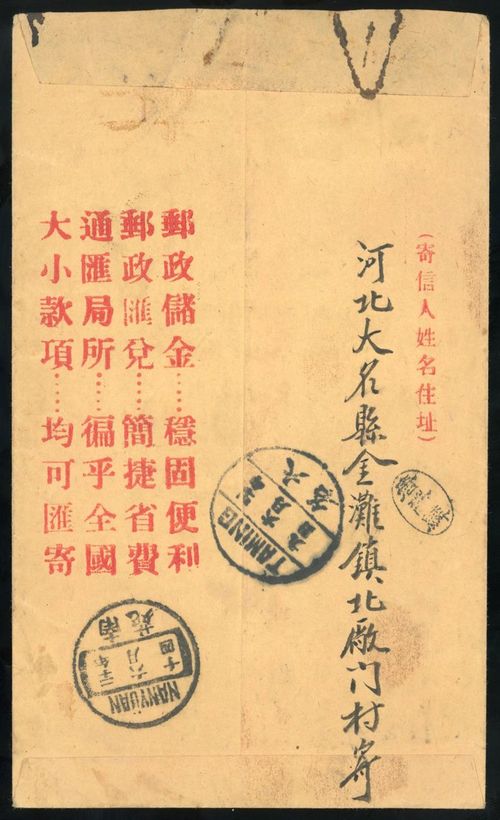 (寄信人姓名住址)
河北大名縣金灘鎮北廠門村寄
郵政儲金……穩固便利
郵政匯兌……簡捷省費
通匯局所……徧乎全國
大小款項……均可匯寄
TAMING
南苑
十四
六月
NANYUAN